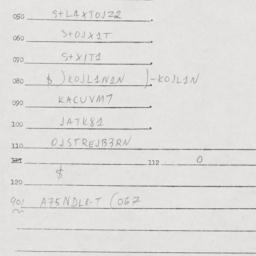 050 S+L4XTOJZZ
060 S+OJX1T
070 S+XIT1
080 $ )KOJL1N1N )-KOJL1N
090 KACUVM7
100 JATK81
110 OJSTREJB3RN
112 0
120 $
901 A75NDLE-T (062